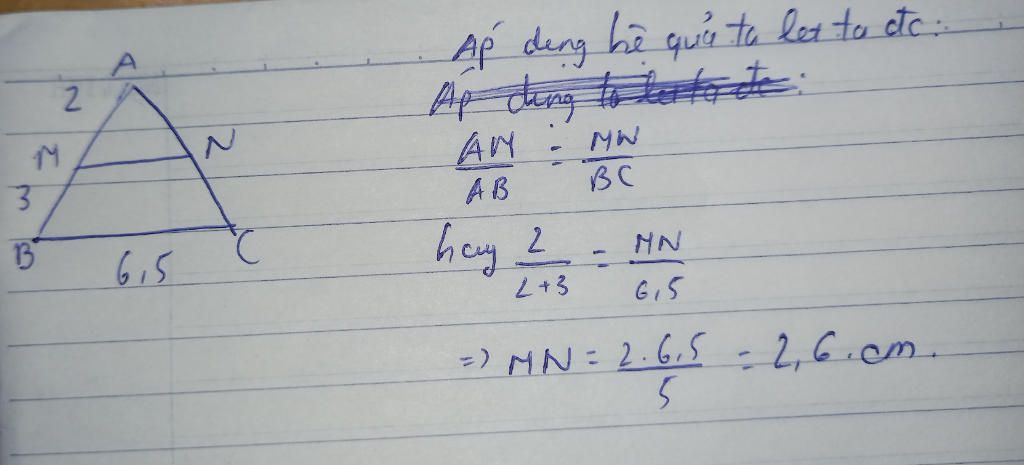 A
2
M
N
3
B
C
6,5
Áp dụng hệ quả ta let ta đc:
Áp dụng ta let ta đc:
AM/AB = MN/BC
hay 2/2+3 = MN/6,5
=> MN = 2.6,5/5 = 2,6.cm.